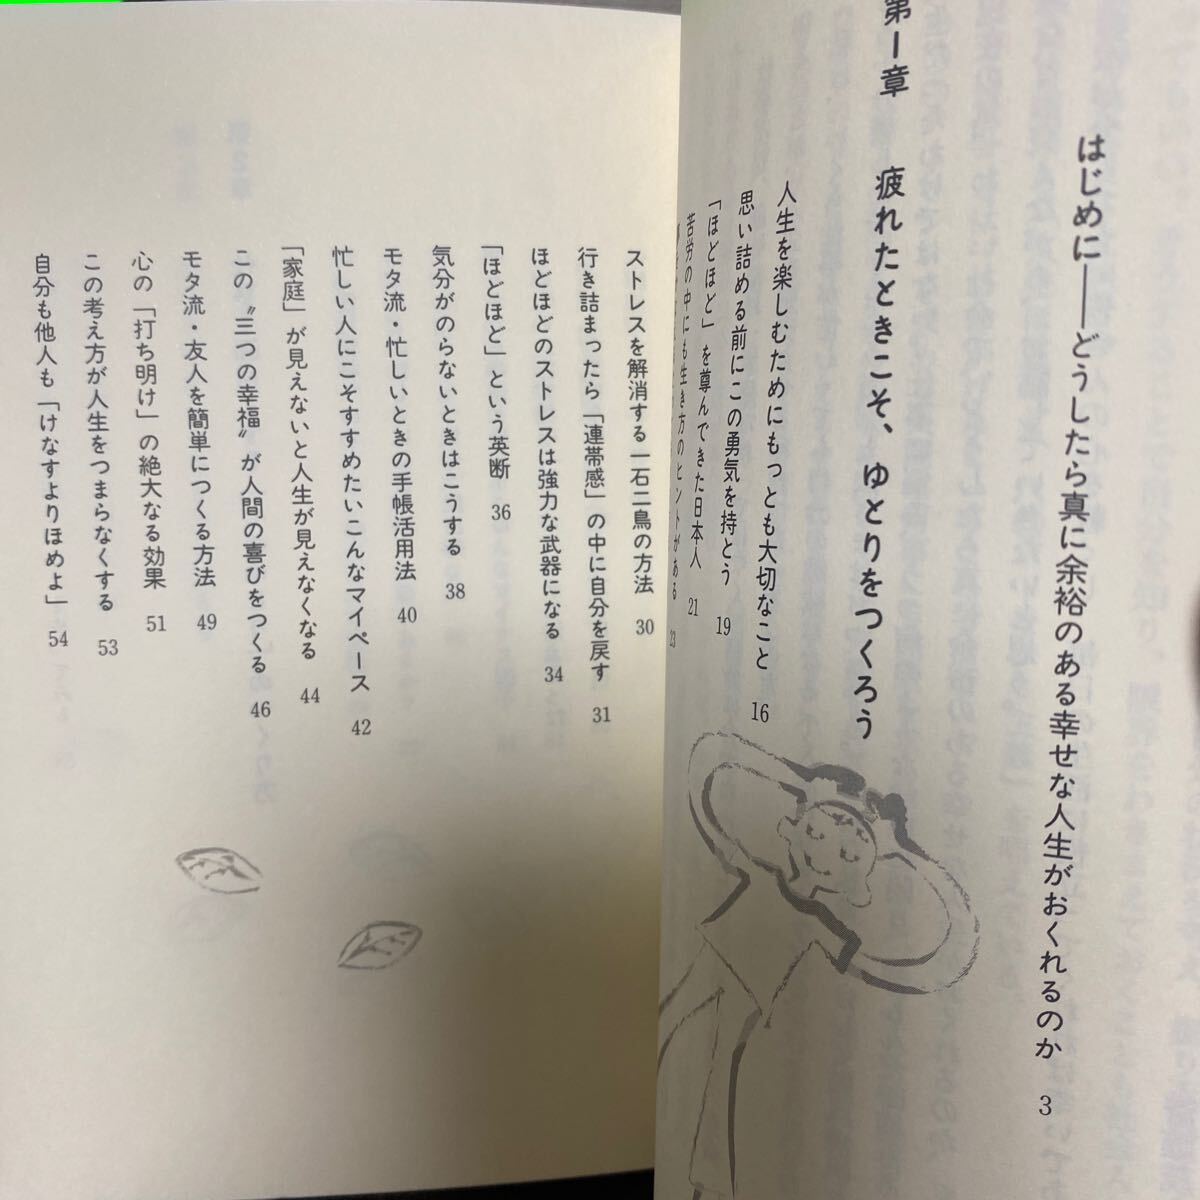 はじめに――どうしたら真に余裕のある幸せな人生がおくれるのか 3
第1章 疲れたときこそ、ゆとりをつくろう
人生を楽しむためにもっとも大切なこと 16
思い詰める前にこの勇気を持とう 19
「ほどほど」を尊んできた日本人 21
苦労の中にも生き方のヒントがある 23
ストレスを解消する一石二鳥の方法 30
行き詰まったら「連帯感」の中に自分を戻す 31
ほどほどのストレスは強力な武器になる 34
「ほどほど」という英断 36
気分がのらないときはこうする 38
モタ流・忙しいときの手帳活用法 40
忙しい人にこそすすめたいこんなマイペース 42
「家庭」が見えないと人生が見えなくなる 44
この〝三つの幸福〟が人間の喜びをつくる 46
モタ流・友人を簡単につくる方法 49
心の「打ち明け」の絶大なる効果 51
この考え方が人生をつまらなくする 53
自分も他人も「けなすよりほめよ」 54